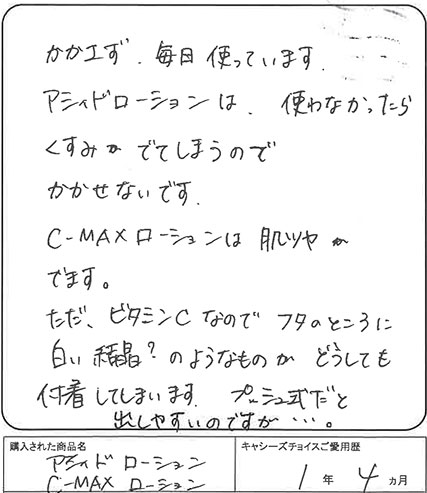 かかエず、毎日使っています。
アシィドローションは、使わなかったら
くすみがでてしまうので
かかせないです。
C-MAXローションは肌ツヤが
でます。
ただ、ビタミンCなのでフタのところに
白い結晶?のようなものがどうしても
付着してしまいます。プッシュ式だと
出しやすいのですが…。
購入された商品名
アシィドローション
C-MAXローション
キャシーズチョイスご愛用歴
1年4ヵ月